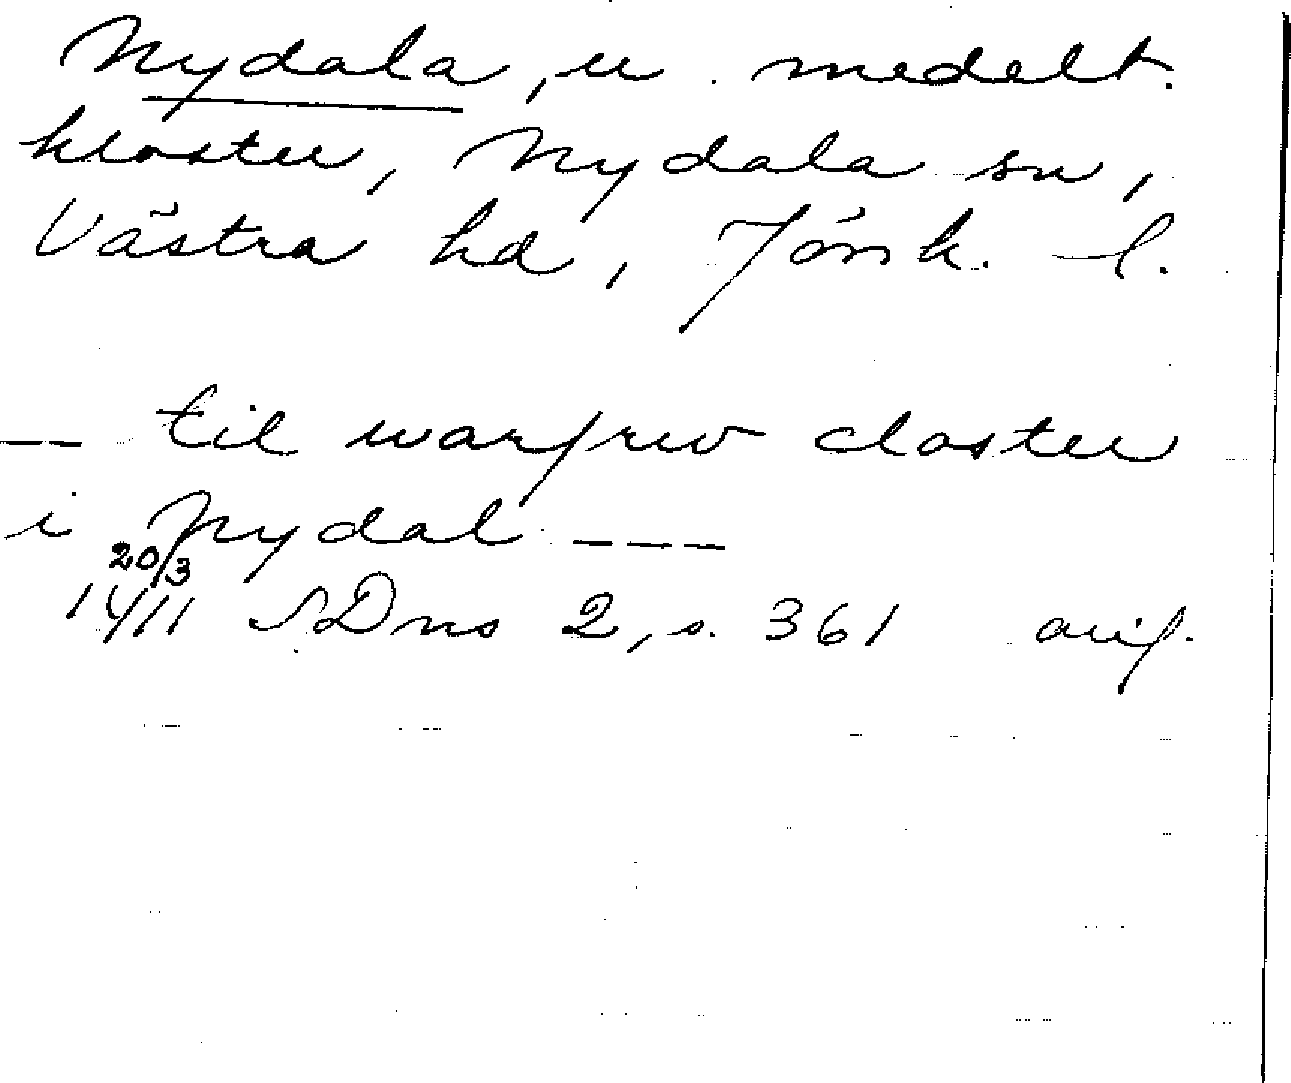 Nydala, u. medelt.
kloster, Nydala sn,
Västra hd, Jönk. l.
-- til warfrw closter
i Nydal ---
20/3
1411 SDns 2, s. 361 orig.